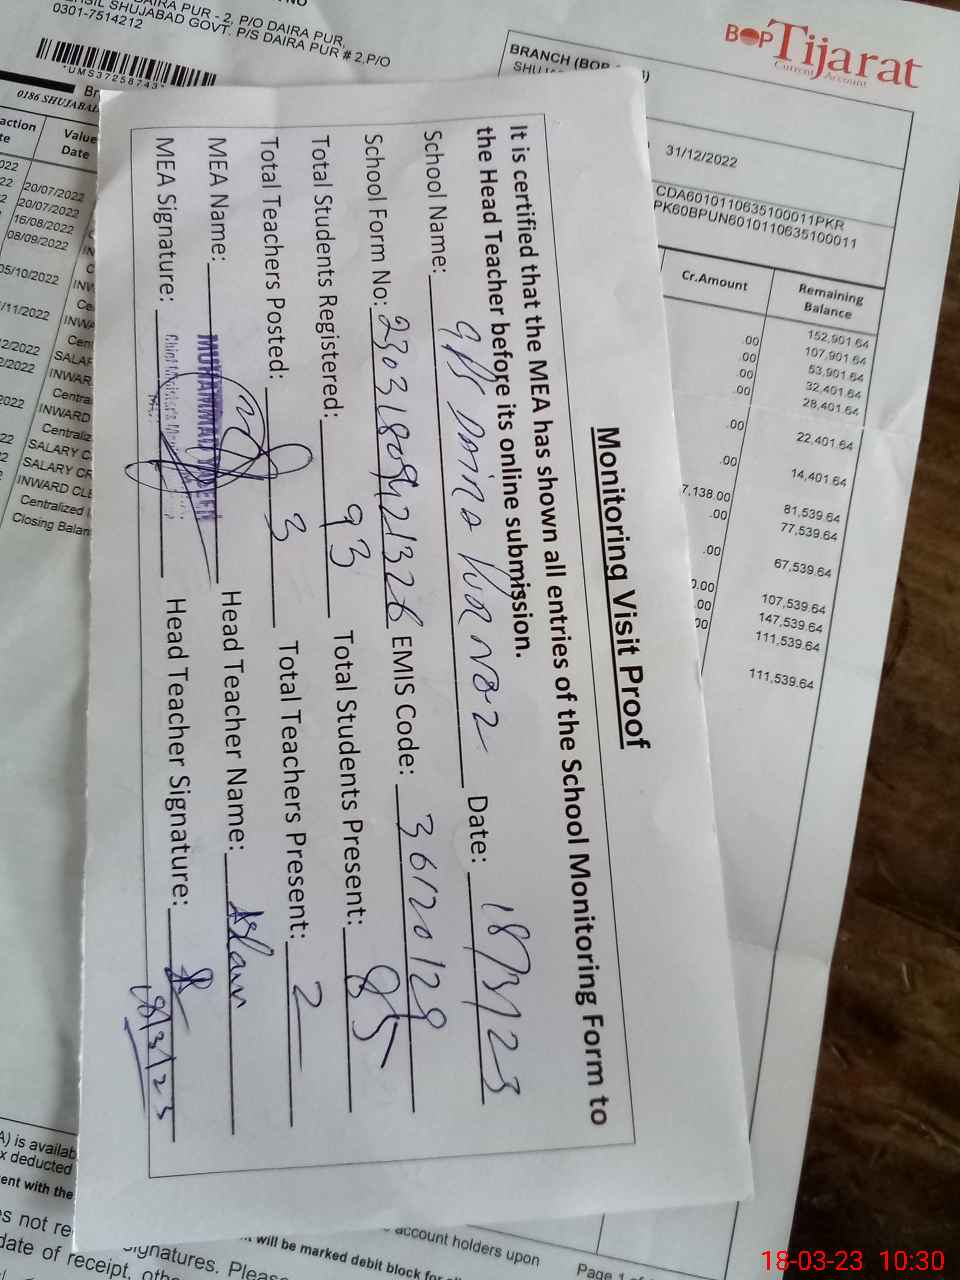 Monitoring Visit Proof
It is certified that the MEA has shown all entries of the School Monitoring Form to
the Head Teacher before its online submission.
School Name: GPS Daira Pur No 2 Date: 18/3/23
School Form No: 23031809421326 EMIS Code: 36120128
Total Students Registered: 93 Total Students Present: 85
Total Teachers Posted: 3 Total Teachers Present: 2
MEA Name: MUHAMMAD Head Teacher Name: Aslam
MEA Signature: Head Teacher Signature:
18/3/23
DAIRA PUR - 2, P/O DAIRA PUR,
SHUJABAD GOVT. P/S DAIRA PUR # 2,P/O
0301-7514212
*UMS37258743*
0186 SHUJABAD
BOP Tijarat
Current Account
BRANCH (BOP
31/12/2022
CDA6010110635100011PKR
PK60BPUN6010110635100011
Value
Date
Cr.Amount
Remaining
Balance
20/07/2022
20/07/2022
16/08/2022
08/09/2022
05/10/2022
.00 152,901.64
.00 107,901.64
.00 53,901.64
.00 32,401.64
28,401.64
.00 22,401.64
.00 14,401.64
7,138.00 81,539.64
.00 77,539.64
.00 67,539.64
107,539.64
.00 147,539.64
111,539.64
111,539.64
INWARD
SALARY C
SALARY CR
INWARD CLE
Centralized
Closing Balan
A) is availab
x deducted
ent with the
es not re
signatures. Pleas
date of receipt,
will be marked debit block for
account holders upon
Page 1
18-03-23 10:30